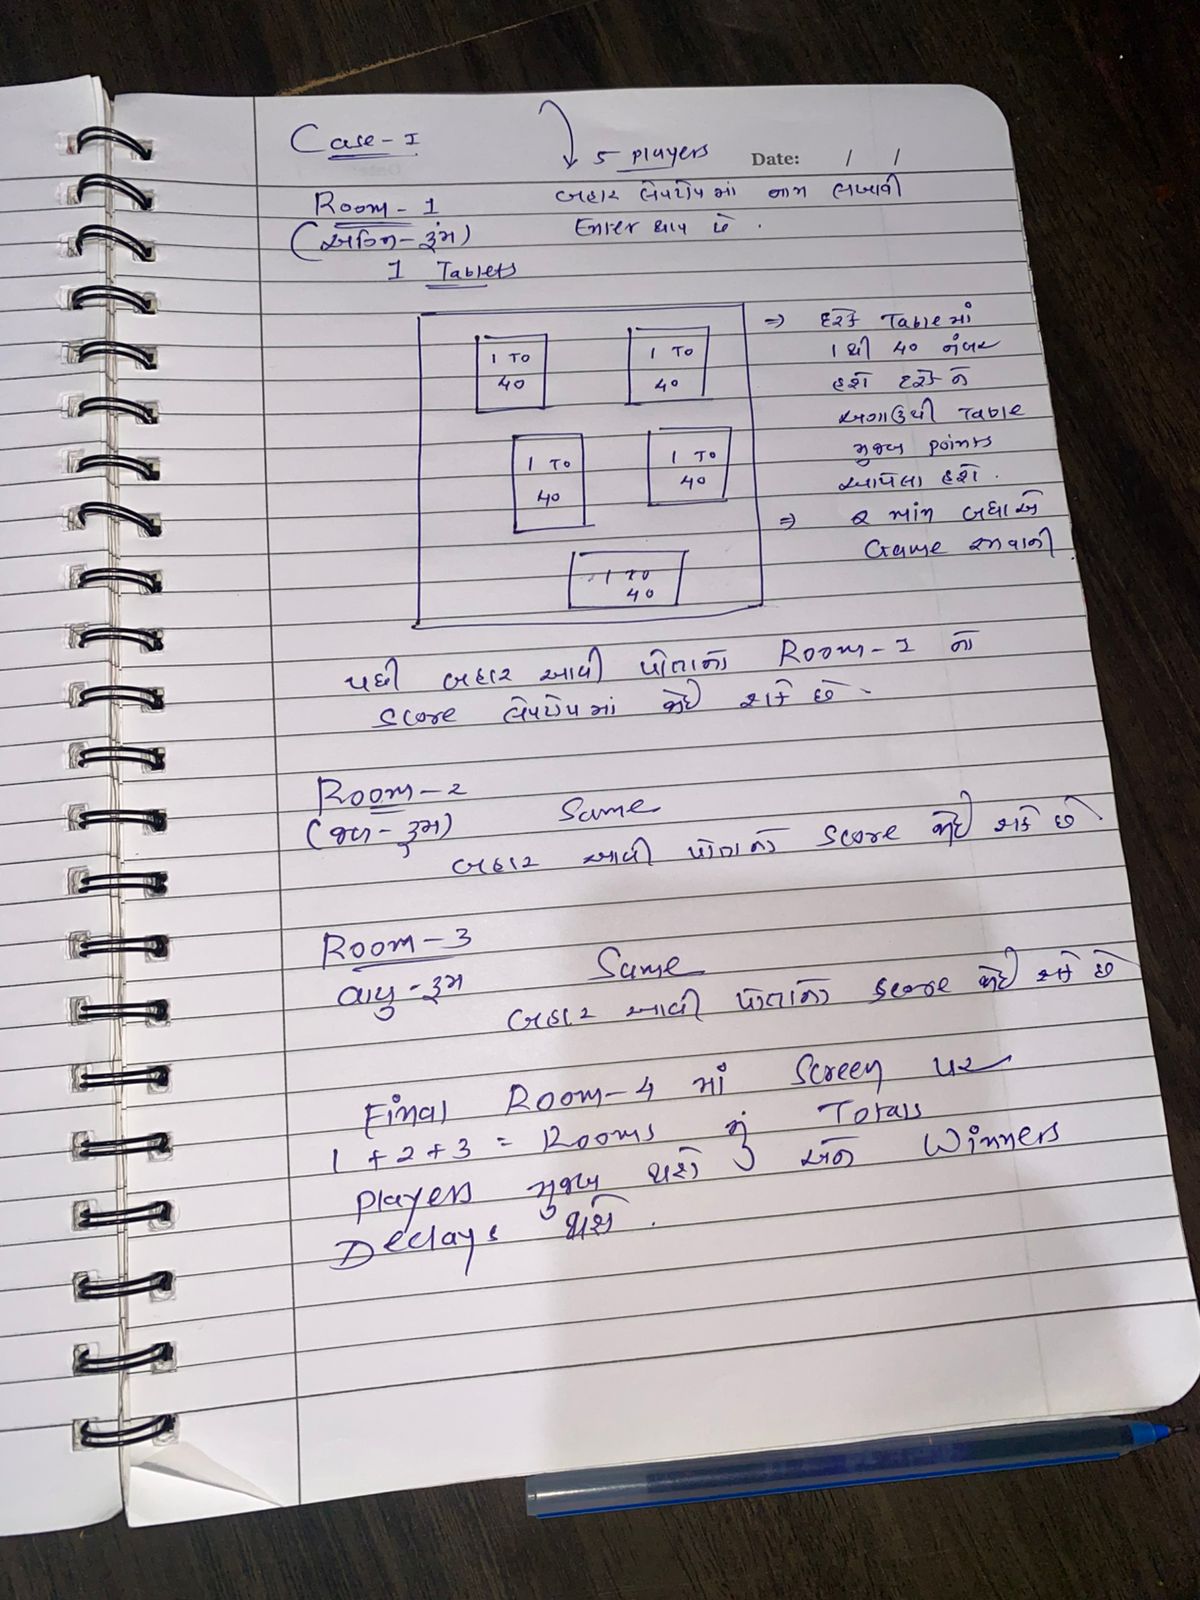 Case - I
5 players
Date: / /
Room - 1
બહાર લેપટોપ માં નામ લખાવી
(અગ્નિ - રૂમ)
Enter થાય છે.
1 Tablets
1 TO 40
1 TO 40
1 TO 40
1 TO 40
1 TO 40
⇒ દરેક Table માં
1 થી 40 નંબર
હશે દરેક ને
અગાઉથી Table
મુજબ points
આપેલા હશે.
⇒ 2 મીનીટ બધાએ
Game રમવાની
પછી બહાર આવી પોતાનો Room - I નો
Score લેપટોપ માં જોઈ શકે છે.
Room - 2
(જલ - રૂમ)
Same
બહાર આવી પોતાનો Score જોઈ શકે છે
Room - 3
વાયુ - રૂમ
Same
બહાર આવી પોતાનો Score જોઈ શકે છે
Final Room - 4 માં Screen પર
1 + 2 + 3 = Rooms નું Totals
Players મુજબ થશે અને Winners
Declays થશે.